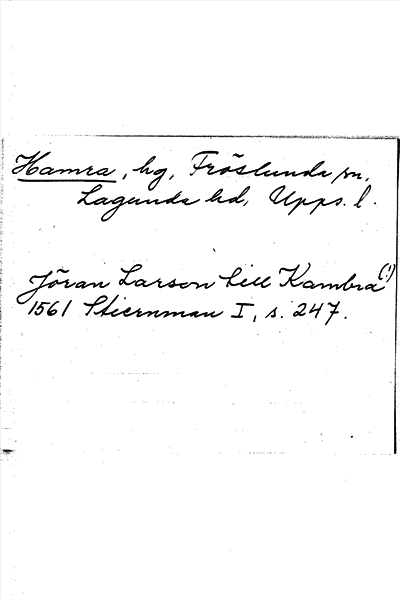 Hamra, hg, Fröslunda sn,
Lagunda hd, Upps. l.
Jöran Larson till Kambra (!)
1561 Stiernman I, s. 247.